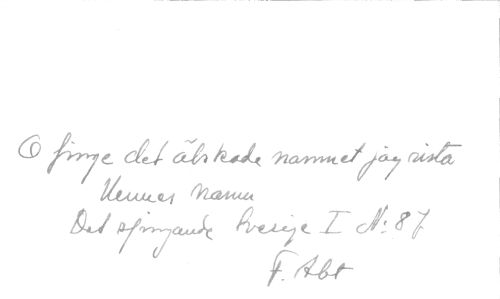 O finge det älskade namnet jag rista
Hennes namn
Det sjungande Sverige I N: 87
F. Abt